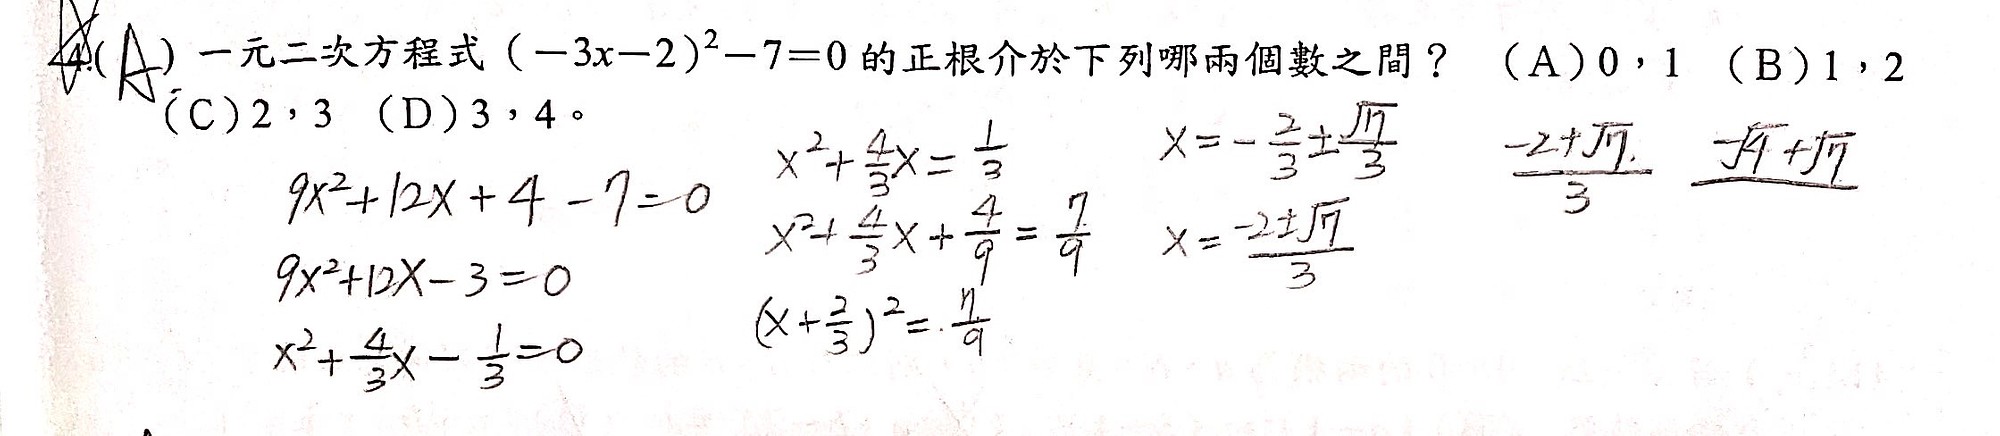 4.(A) 一元二次方程式（－3x－2）²－7＝0 的正根介於下列哪兩個數之間？ （A）0，1 （B）1，2
（C）2，3 （D）3，4。
9x²+12x+4-7=0
9x²+12x-3=0
x²+4/3x-1/3=0
x²+4/3x=1/3
x²+4/3x+4/9=7/9
(x+2/3)²=7/9
x=-2/3±√7/3
x=(-2±√7)/3
(-2+√7)/3
-√4+√7